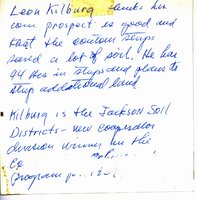 Leon Kilburg thinks his
corn prospect is good and
that the contour strips
saved a lot of soil. He has
94 Acs in strips and plans to
strip additional land
Kilburg is the Jackson Soil
Districts - new cooperator
division winner in the
Co.
program